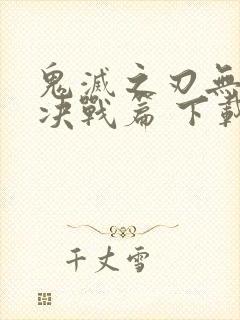 鬼滅之刃無
決戰篇 下載
千丈雪